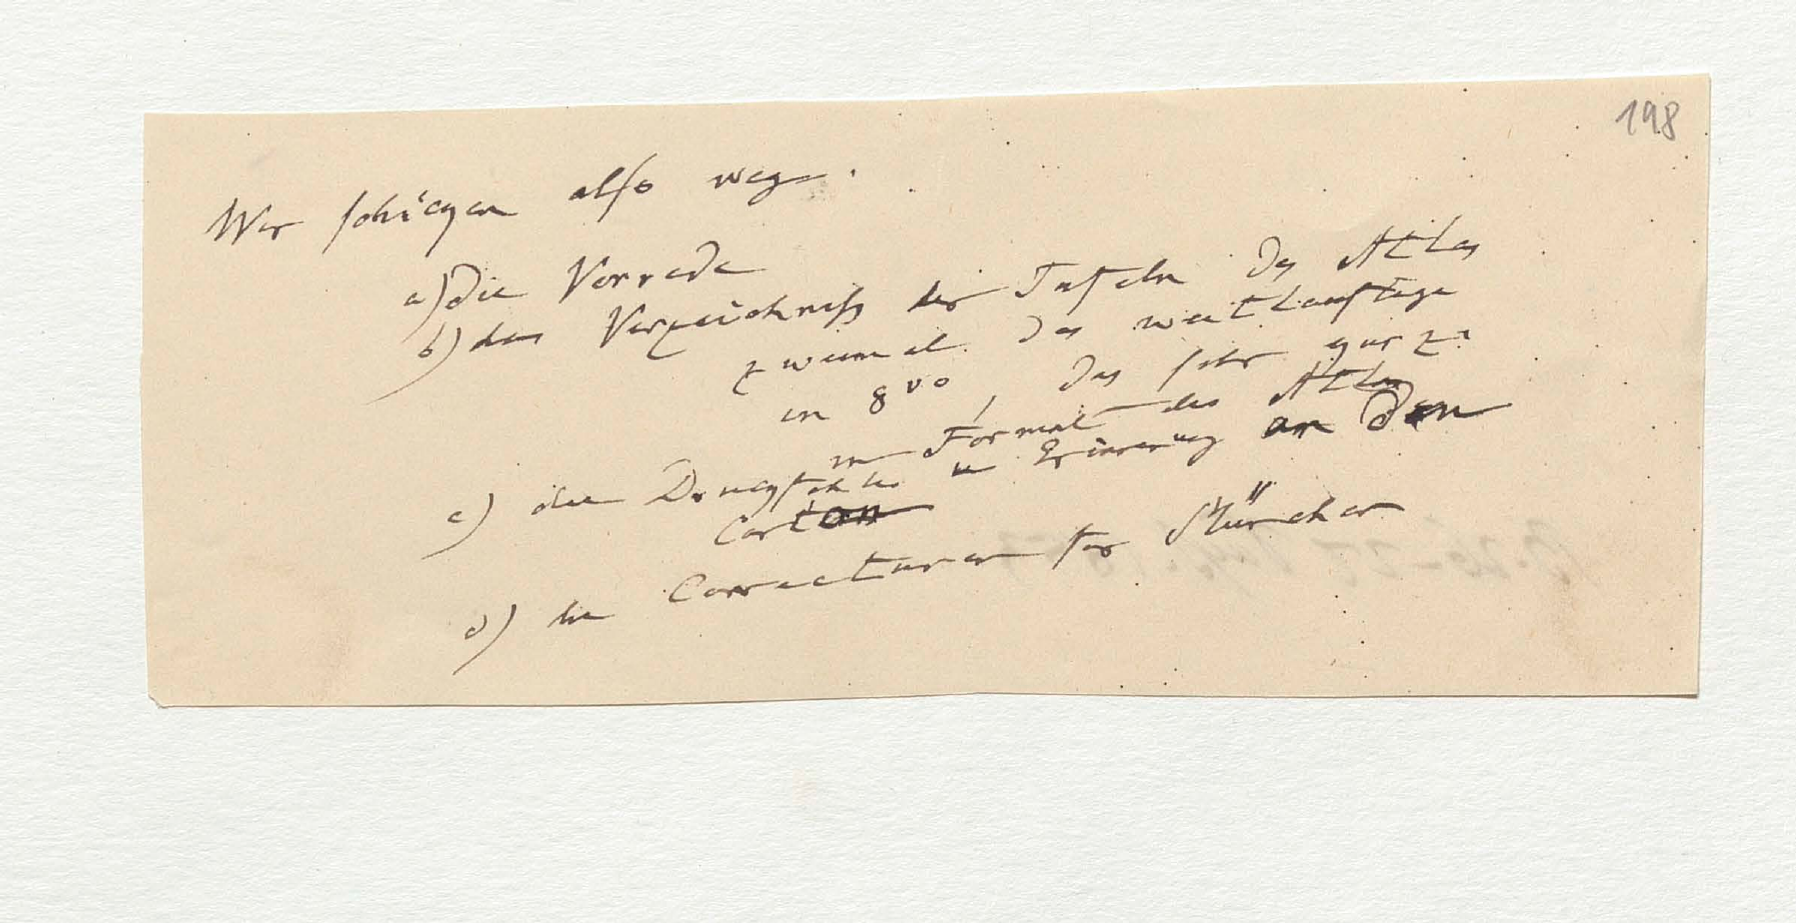 198
Wir schikken also weg:
a) Die Vorrede
b) das Verzeichniß der Tafeln des Atlas
zweimal: das weitlauftige
in 8vo, das sehr kurze
im Format des Atlas
c) die Drukfehler u Erinerung an den
Carton
d) die Correcturen für Stürcher